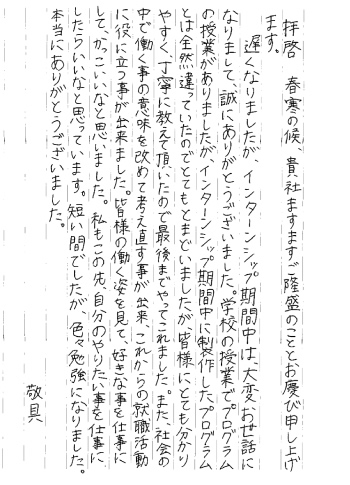 拝啓　春寒の候、貴社ますますご隆盛のこととお慶び申し上げ
ます。
遅くなりましたが、インターンシップ期間中は、大変お世話に
なりまして、誠にありがとうございました。学校の授業でプログラム
の授業がありましたが、インターンシップ期間中に製作したプログラム
とは全然違っていたのでとてもとまどいましたが、皆様にとても分かり
やすく丁寧に教えて頂いたので最後までやってこれました。また、社会の
中で働く事の意味を改めて考え直す事が出来、これからの就職活動
に役に立つ事が出来ました。皆様の働く姿を見て、好きな事を仕事に
して、かっこいいなと思いました。私もこの先、自分のやりたい事を仕事に
したらいいなと思っています。短い間でしたが、色々勉強になりました。
本当にありがとうございました。
敬具